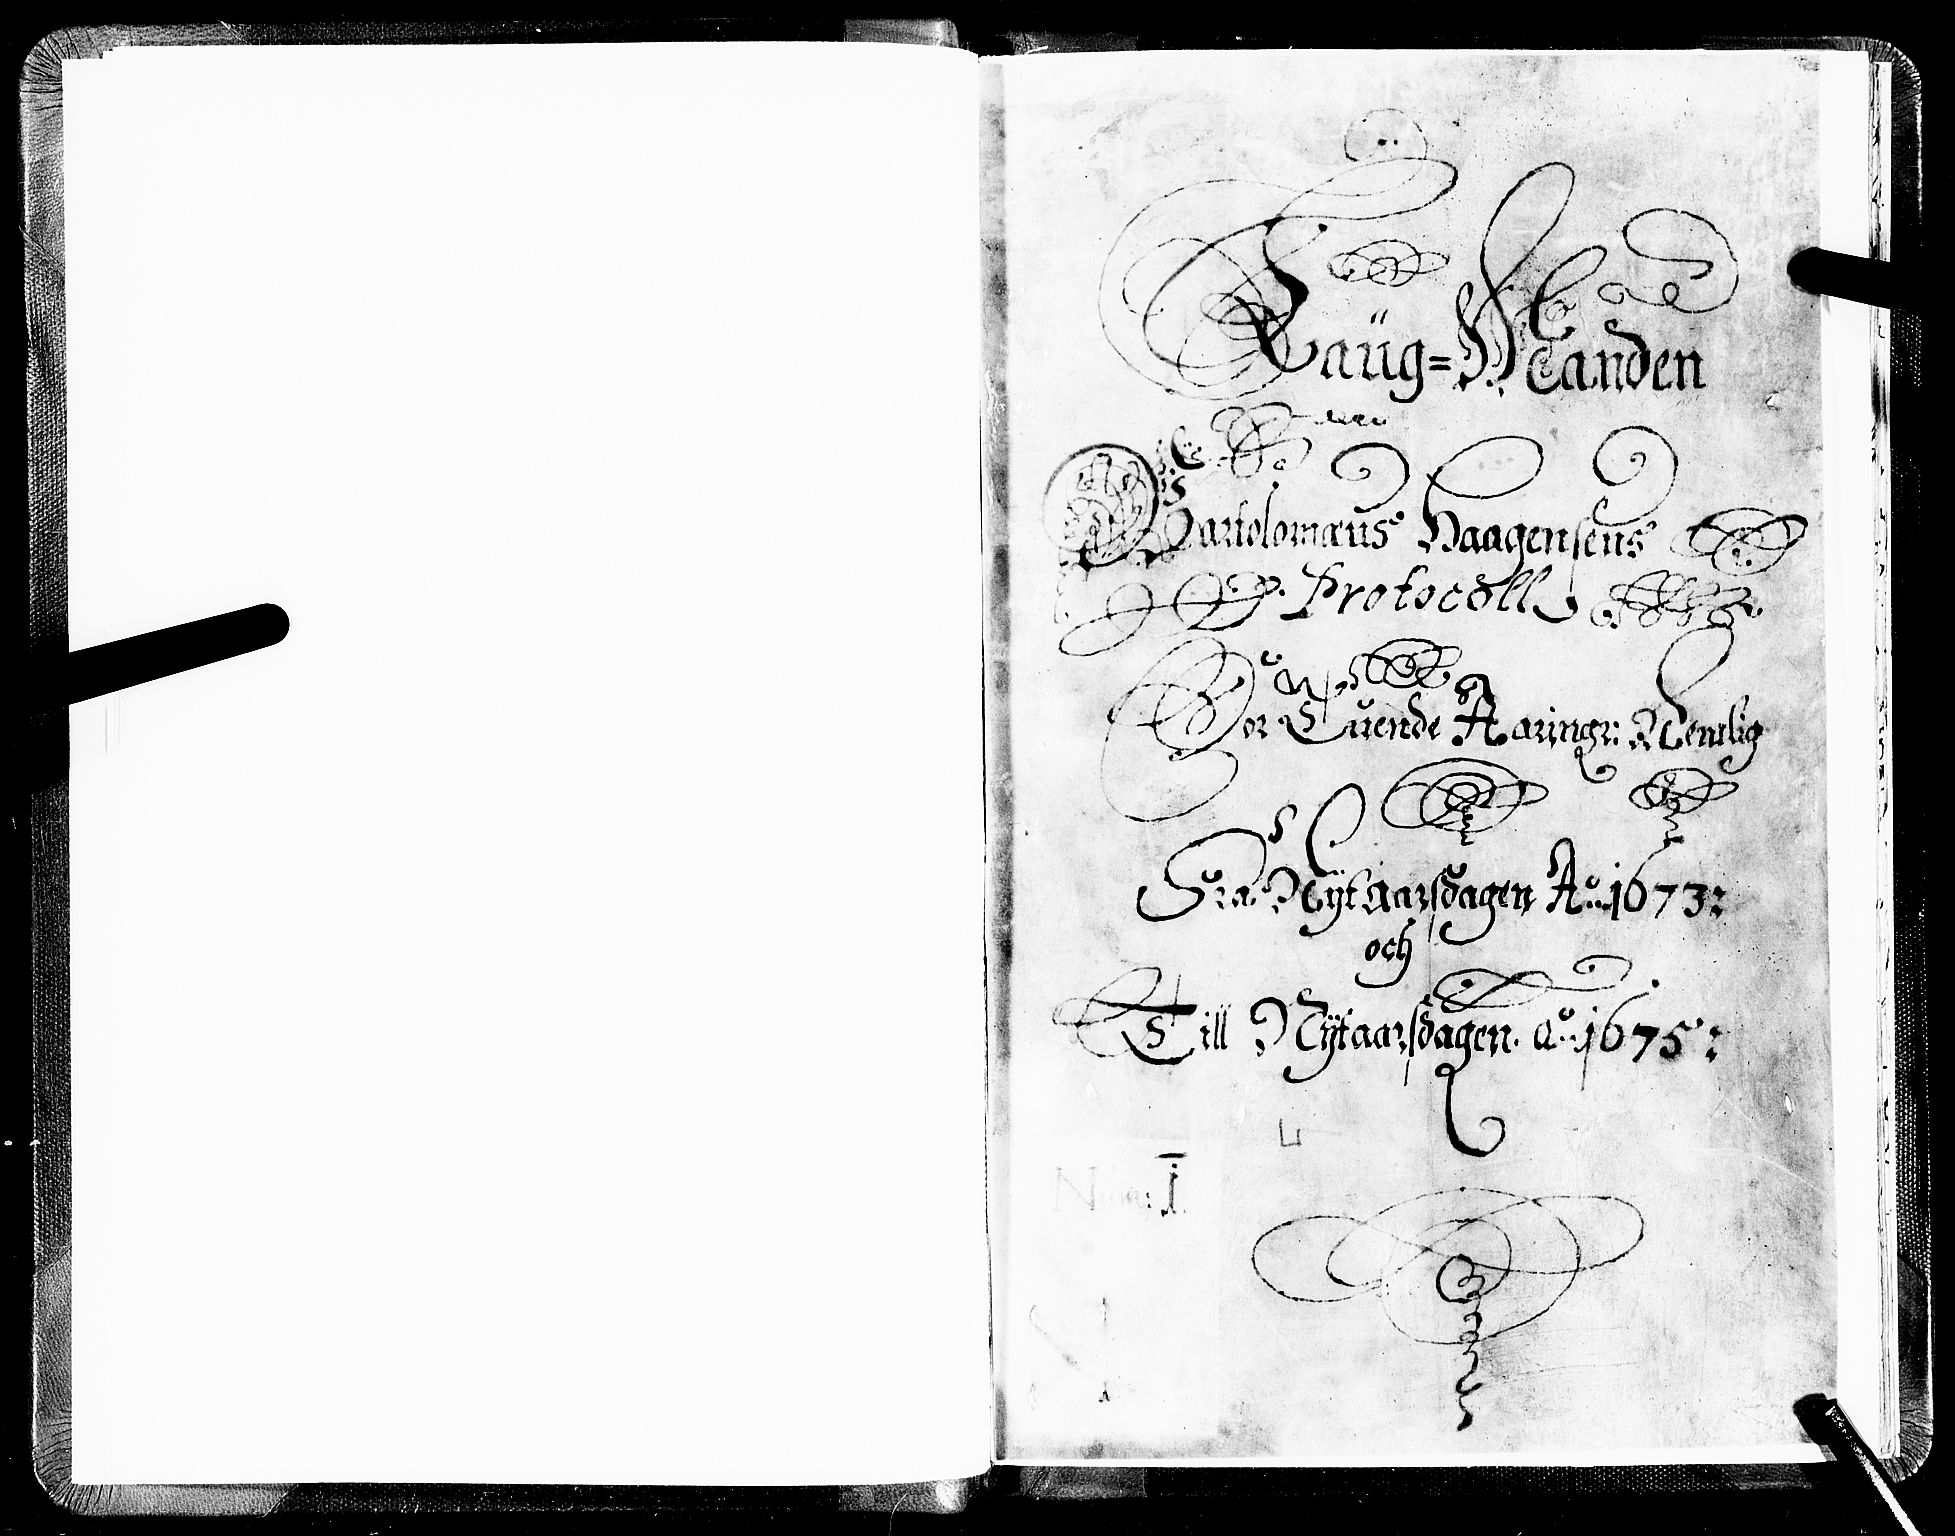 Laüg=Manden
Bartolomæus Haagensens
Protocoll
For Tuende Aaringr: Nemlig
Fra Nÿtaarsdagen Aº: 1673:
och
Till Nÿtaarsdagen Aº: 1675:
Num: 1.